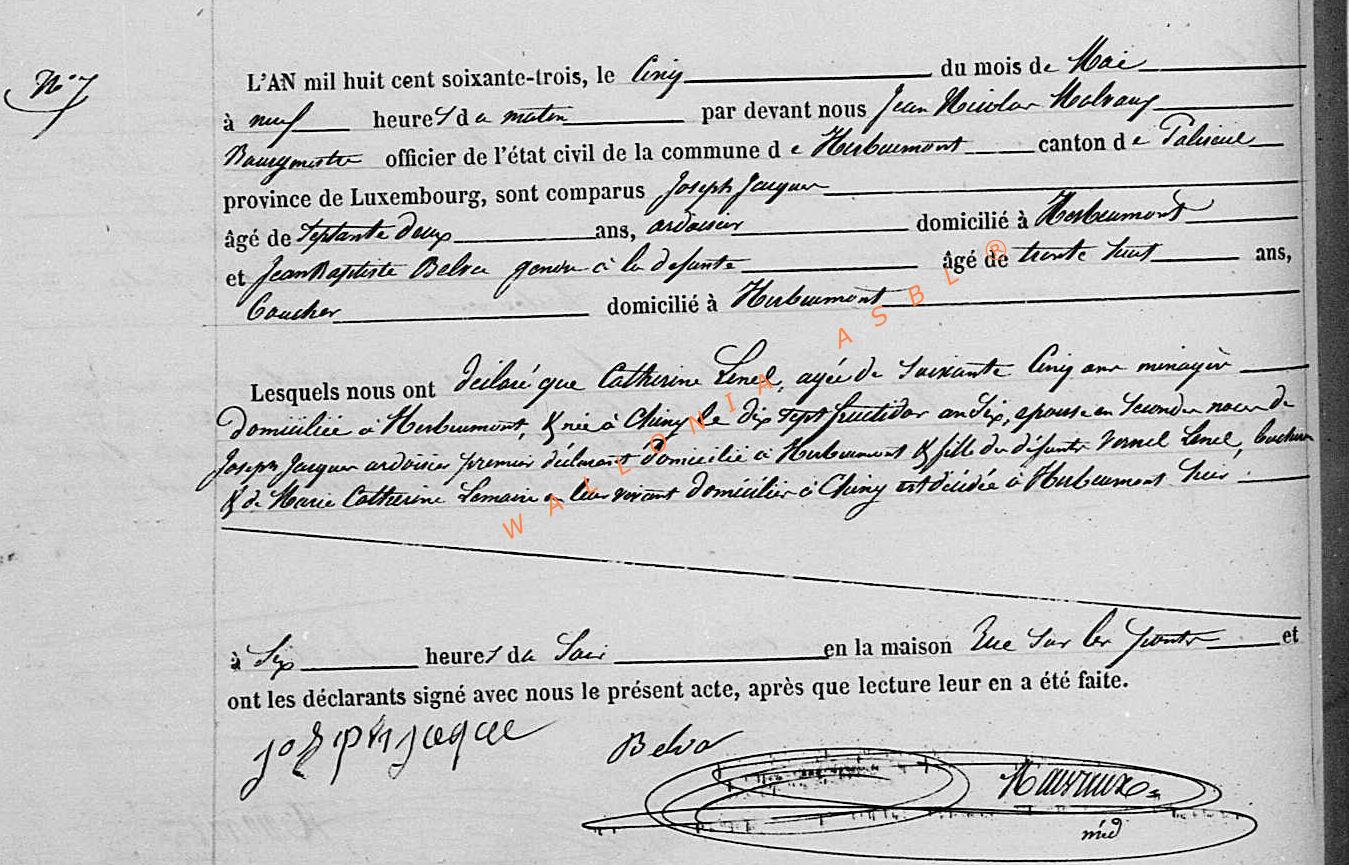 N° 7
L'AN mil huit cent soixante-trois, le Cinq du mois de Mai
à neuf heures du matin par devant nous Jean Nicolas
Bourgmestre officier de l'état civil de la commune de Herbeumont canton de Paliseul
province de Luxembourg, sont comparus Joseph Jacques
âgé de Septante deux ans, ardoisier domicilié à Herbeumont
et Jean Baptiste Belva gendre à la défunte âgé de trente huit ans,
domicilié à Herbeumont
Lesquels nous ont déclaré que Catherine Lenel, agée de Soixante Cinq ans ménagère
domiciliée à Herbeumont, & née à Chiny le dix sept fructidor an Six, épouse en Secondes noces de
Joseph Jacques ardoisier premier déclarant domicilié à Herbeumont & fille du défunt Lenel, bucheron
& de Marie Catherine Lemaire en leur vivant domiciliés à Chiny est décédée à Herbeumont hier
à Six heures du Soir en la maison Rue Sur les et
ont les déclarants signé avec nous le présent acte, après que lecture leur en a été faite.
Joseph jaque Belva
WALLONIA ASBL ®